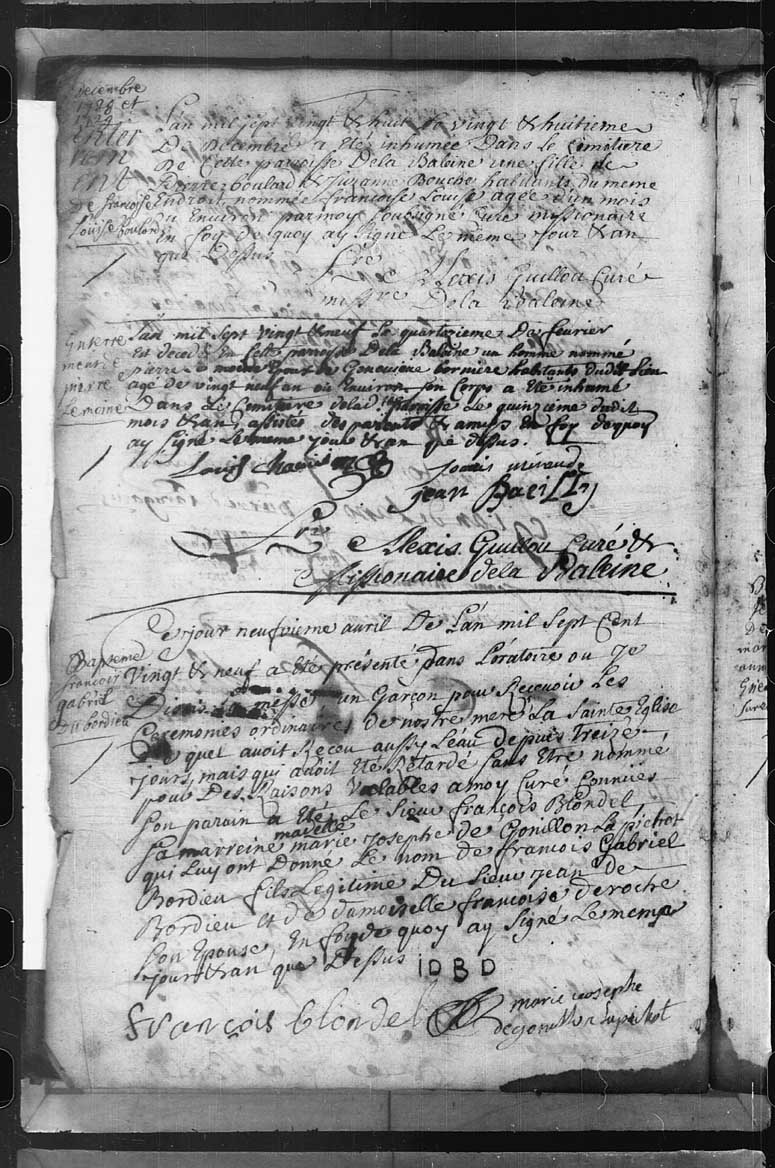 decembre
1728 et
1729
enter
rem
ent
de francoise
Louise boulard
Lan mil sept vingt & huit le vingt & huitieme
De Decembre a été inhumée Dans le Cemetiere
De Cette paroisse Dela Baleine une fille de
Pierre boulard & Suzanne Bouché habitants du meme
Endroit nommée francoise Louise agée d'un mois
ou Environ par moy soussigné Curé missionaire
En foy de quoy ay signé Le même Jour & an
que Dessus
frè Alexis Guillou Curé
missre Dela Baleine
Enterre
ment de
pierre
Le moine
Lan mil Sept Vingt & neuf Le quatorzieme De fevrier
Est decedé En Cette parroisse Dela Baleine un homme nommé
pierre Le moine Epoux de Genevieve bormiere habitants dudit Lieu
agé de vingt neuf an ou Environ Son Corps a Eté inhumé
Dans Le Cemitiere dela de paroisse Le quinzieme dudit
mois & an, assistés des parents & amys En foy dequoy
ay signé Le meme jour & an que dessus.
Louis
Jouis
jean Bacilly
fre Alexis Guillou Curé &
Missionaire dela Baleine
Bapteme
francois
gabriel
Du bordieu
Ce jour neufvieme avril De L'an mil Sept Cent
Vingt & neuf a Eté présenté dans L'oratoire ou Je
Disois La messe un Garçon pour Recevoir Les
Ceremonies ordinaires de nostre mere La Sainte Eglise
Lequel avoit Receu aussy L'eau depuis treize
jours, mais qui avoit Eté Retardé Sans Etre nommé
pour Des Raisons Valables a moy Curé Connües
Son parain a Eté Le Sieur françois Blondel
La marreine madelle marie Josephe de Gonillon La pichot
qui Luy ont Donné Le nom de francois Gabriel
Bordieu fils Legitime Du Sieur Jean de
Bordieu et de damoiselle francoise deroche
Son Epouse, En foy de quoy ay Signé Le meme
jour & an que Dessus IDBD
françois blondel
marie iosephe
degonillon lapichot